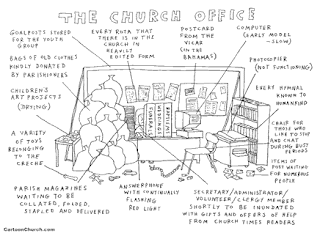 THE CHURCH OFFICE
GOALPOSTS STORED
FOR THE YOUTH
GROUP
EVERY ROTA THAT
THERE IS IN THE
CHURCH IN
HEAVILY
EDITED FORM
POSTCARD
FROM THE
VICAR
(IN THE
BAHAMAS)
COMPUTER
(EARLY MODEL
- SLOW)
BAGS OF OLD CLOTHES
KINDLY DONATED
BY PARISHIONERS
PHOTOCOPIER
(NOT FUNCTIONING)
CHILDREN'S
ART PROJECTS
(DRYING)
EVERY HYMNAL
KNOWN TO
HUMANKIND
A VARIETY
OF TOYS
BELONGING
TO THE
CRECHE
CHAIR FOR
THOSE WHO
LIKE TO STOP
AND CHAT
DURING BUSY
PERIODS
ITEMS OF
POST WAITING
FOR NUMEROUS
PEOPLE
PARISH MAGAZINES
WAITING TO BE
COLLATED, FOLDED,
STAPLED AND DELIVERED
ANSWERPHONE
WITH CONTINUALLY
FLASHING
RED LIGHT
SECRETARY/ADMINISTRATOR/
VOLUNTEER/CLERGY MEMBER
SHORTLY TO BE INUNDATED
WITH GIFTS AND OFFERS OF HELP
FROM CHURCH TIMES READERS
CartoonChurch.com